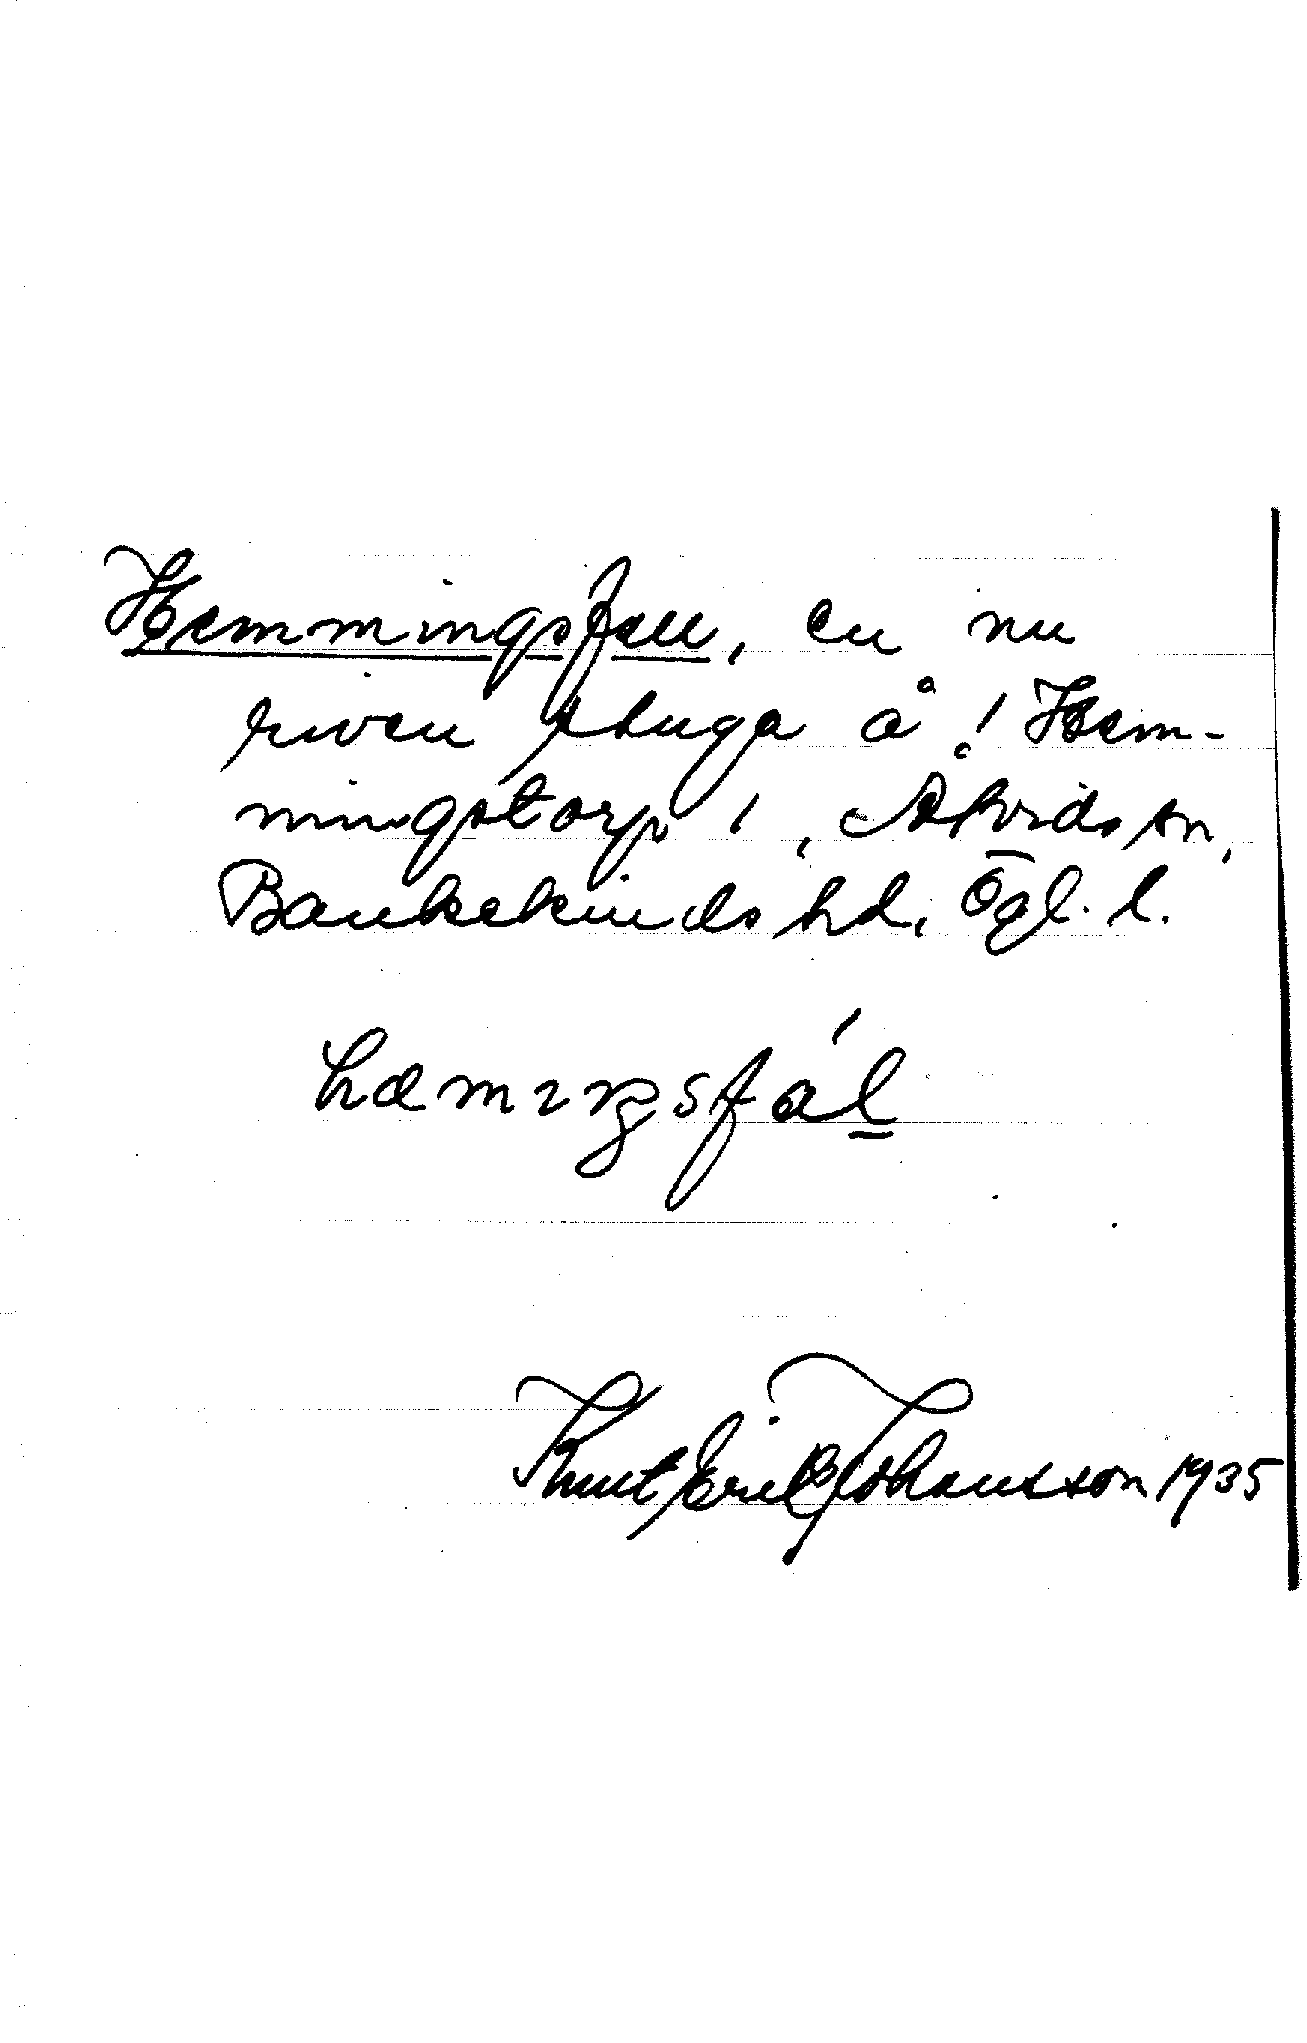 Hemmingsfall, en nu
riven stuga å ! Hem-
mingstorp 1, Åtvids sn,
Bankekinds hd, Ögl. l.
hæmıŋsfál̲
Knut Erik Johansson 1935